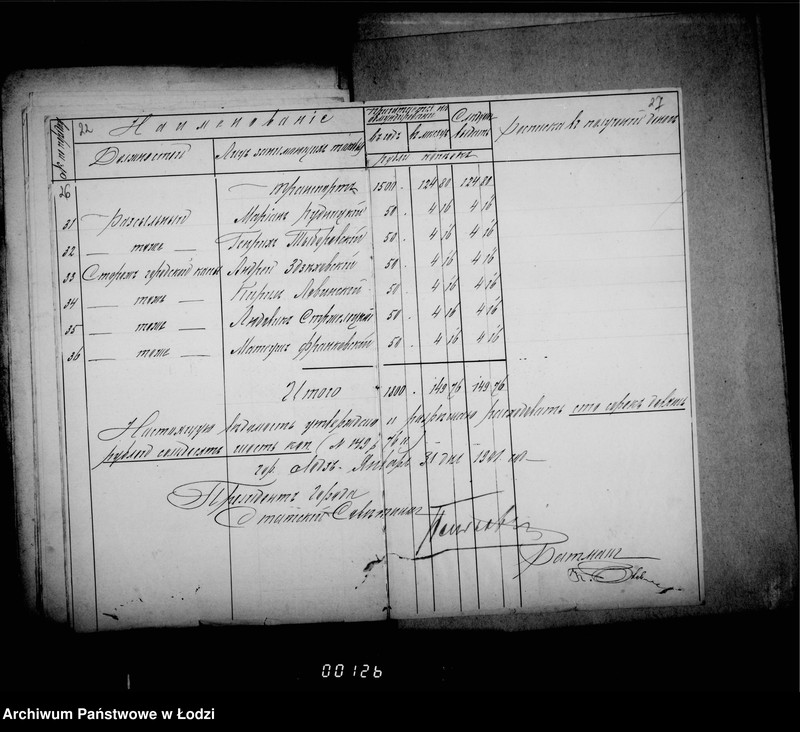 22 27
Наименованіе
Должностей Лицъ занимающихъ таковыя
въ годъ въ мѣсяцъ Слѣдуетъ выдать Росписка въ полученіи денегъ
рубли копѣек
26 Транспортъ 1500 . 124 80 124 80
31 Разсыльный Маріанъ Рудницкій 50 . 4 16 4 16
32 — тожъ — Генрихъ 50 . 4 16 4 16
33 Сторожъ городской кассы Андрей 50 . 4 16 4 16
34 — тожъ — Левинскій 50 . 4 16 4 16
35 — тожъ — Людвикъ 50 . 4 16 4 16
36 — тожъ — Матеушъ Франковскій 50 . 4 16 4 16
Итого 1800 . 149 76 149 76
Настоящую вѣдомость утверждаю и разрѣшаю расходовать сто сорокъ девять
рублей семьдесятъ шесть коп. (№ 149 р 76 к)
гор. Лодзь. Января 31 дня 1901 года
Президентъ города
Статскій Совѣтникъ
Ратманъ
00126
Archiwum Państwowe w Łodzi